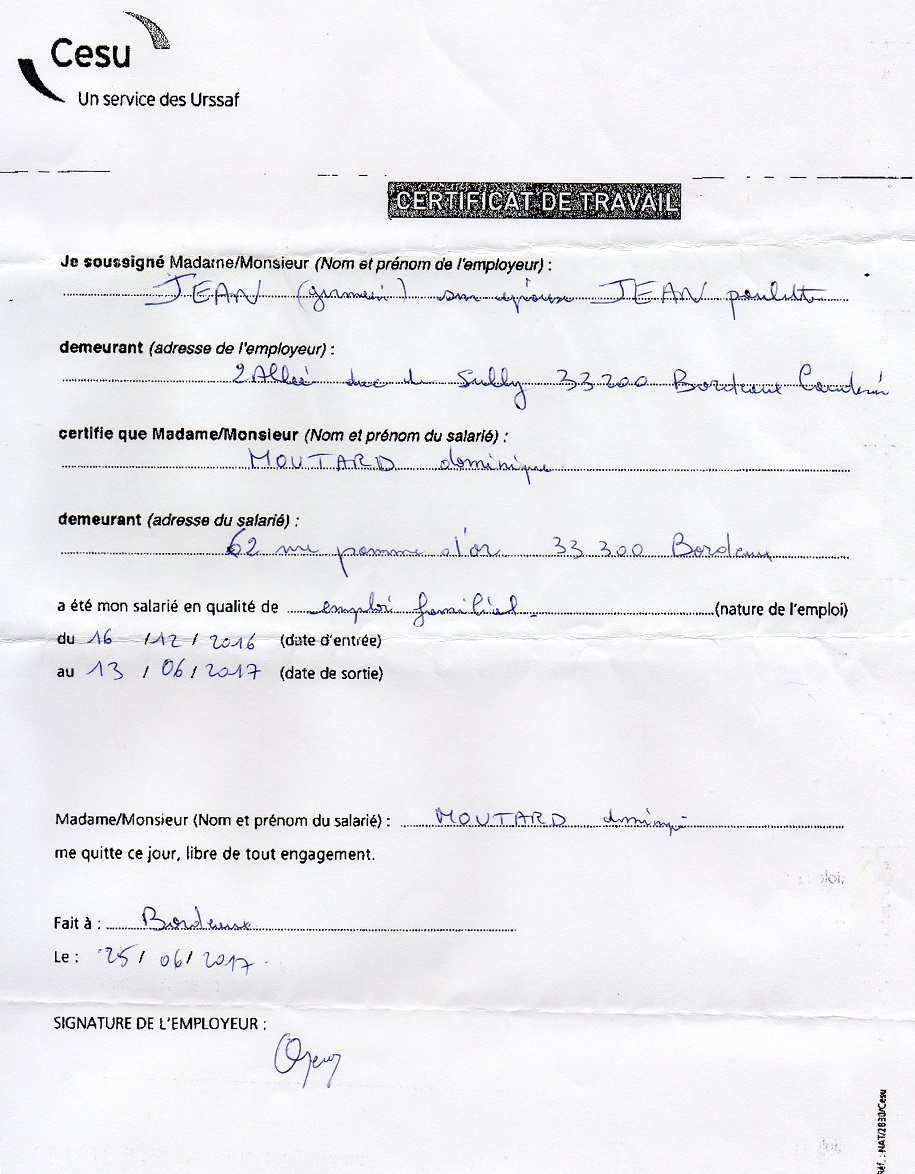 Cesu
Un service des Urssaf
CERTIFICAT DE TRAVAIL
Je soussigné Madame/Monsieur (Nom et prénom de l'employeur) :
JEAN (germain) son épouse JEAN paulette
demeurant (adresse de l'employeur) :
2 Allée duc de Sully 33200 Bordeaux Caudéran
certifie que Madame/Monsieur (Nom et prénom du salarié) :
MOUTARD dominique
demeurant (adresse du salarié) :
62 rue pomme d'or 33 300 Bordeaux
a été mon salarié en qualité de emploi familial. (nature de l'emploi)
du 16 / 12 / 2016 (date d'entrée)
au 13 / 06 / 2017 (date de sortie)
Madame/Monsieur (Nom et prénom du salarié) : MOUTARD dominique
me quitte ce jour, libre de tout engagement.
Fait à : Bordeaux
Le : 25 / 06 / 2017
SIGNATURE DE L'EMPLOYEUR :
Réf. : NAT/2830/Cesu